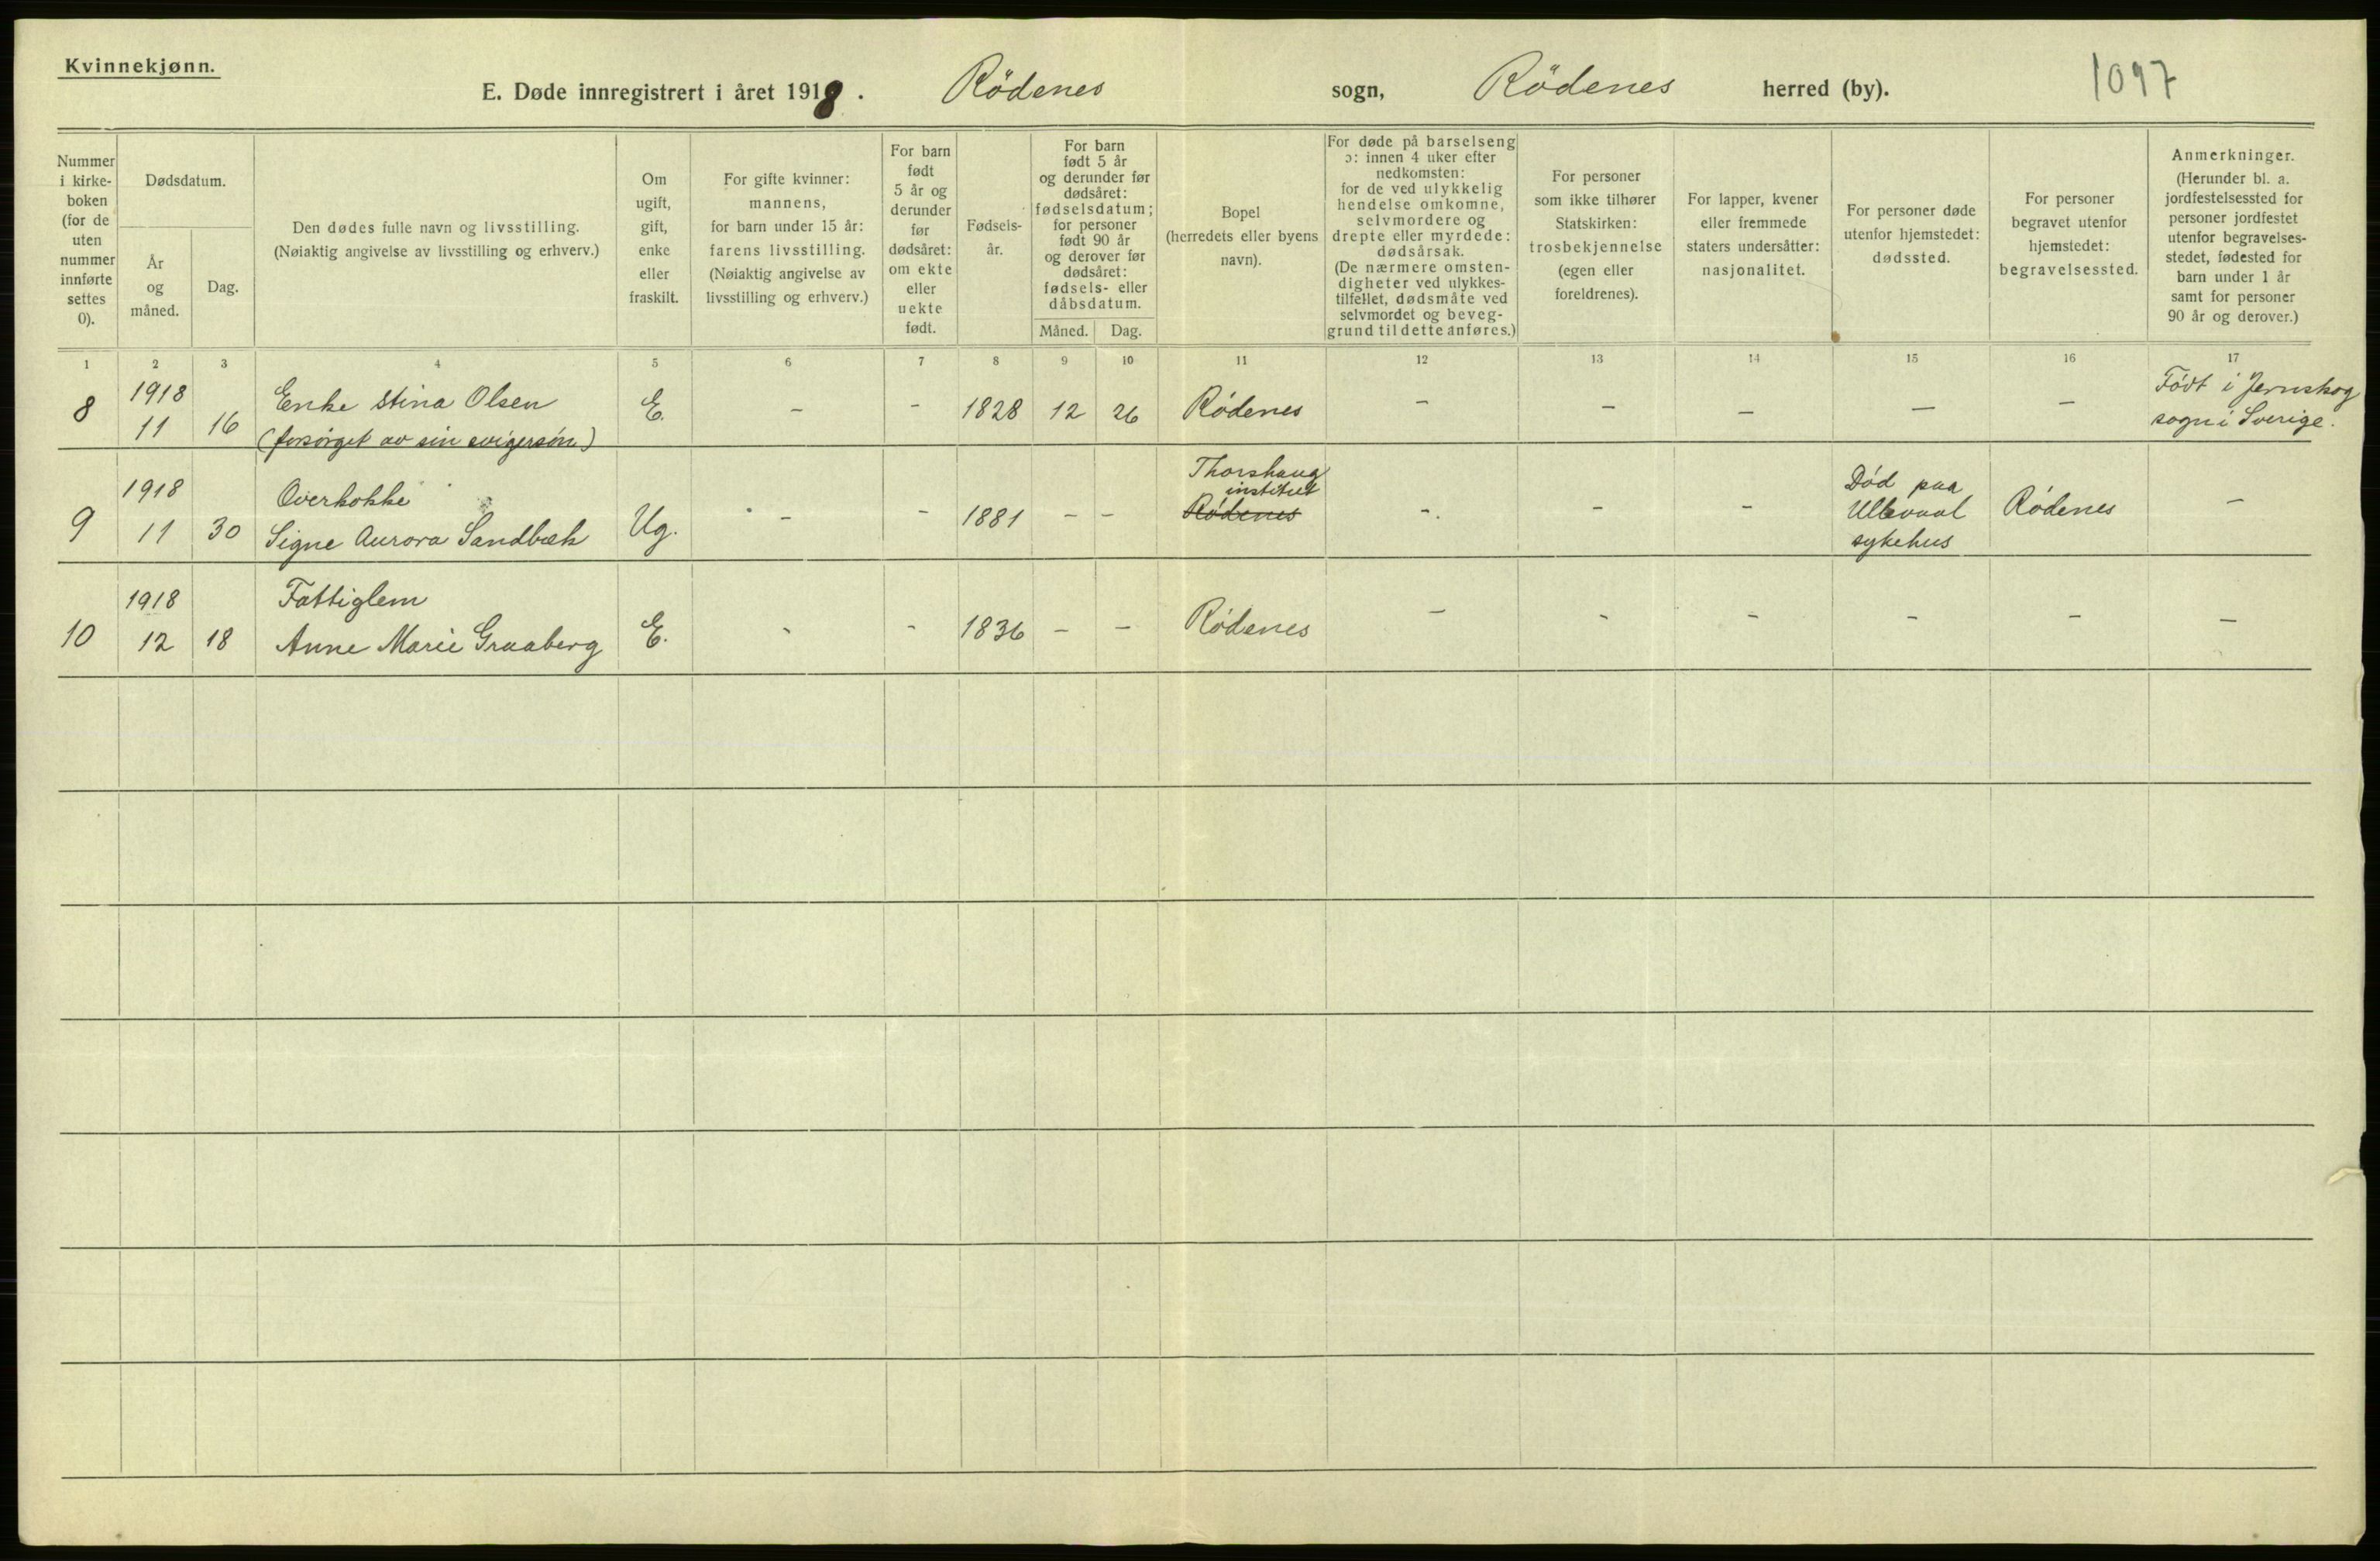 Kvinnekjønn.
E. Døde innregistrert i året 1918. Rödenes sogn, Rödenes herred (by).
1097
Nummer
i kirke-
boken
(for de
uten
nummer
innførte
settes
0).
Dødsdatum.
År
og
måned.
Dag.
Den dødes fulle navn og livsstilling.
(Nøiaktig angivelse av livsstilling og erhverv.)
Om
ugift,
gift,
enke
eller
fraskilt.
For gifte kvinner:
mannens,
for barn under 15 år:
farens livsstilling.
(Nøiaktig angivelse av
livsstilling og erhverv.)
For barn
født
5 år og
derunder
før
dødsåret:
om ekte
eller
uekte
født.
Fødsels-
år.
For barn
født 5 år
og derunder før
dødsåret:
fødselsdatum;
for personer
født 90 år
og derover før
dødsåret:
fødsels- eller
dåbsdatum.
Måned. Dag.
Bopel
(herredets eller byens
navn).
For døde på barselseng
ɔ: innen 4 uker efter
nedkomsten:
for de ved ulykkelig
hendelse omkomne,
selvmordere og
drepte eller myrdede:
dødsårsak.
(De nærmere omsten-
digheter ved ulykkes-
tilfellet, dødsmåte ved
selvmordet og beveg-
grund til dette anføres.)
For personer
som ikke tilhører
Statskirken:
trosbekjennelse
(egen eller
foreldrenes).
For lapper, kvener
eller fremmede
staters undersåtter:
nasjonalitet.
For personer døde
utenfor hjemstedet:
dødssted.
For personer
begravet utenfor
hjemstedet:
begravelsessted.
Anmerkninger.
(Herunder bl. a.
jordfestelsessted for
personer jordfestet
utenfor begravelses-
stedet, fødested for
barn under 1 år
samt for personer
90 år og derover.)
1 2 3 4 5 6 7 8 9 10 11 12 13 14 15 16 17
1918 Enke Stina Olsen Født i Jernskog
8 11 16 (forsørget av sin svigersøn) E. - - 1828 12 26 Rødenes - - - - - sogn i Sverige.
1918 Overkokke Thorshaug
institut Død paa
9 11 30 Signe Aurora Sandbæk Ug. - - 1881 - - Rødenes - - - Ullevaal Rødenes -
sykehus
1918 Fattiglem
10 12 18 Anne Marie Graaberg E. - - 1836 - - Rødenes - - - - - -